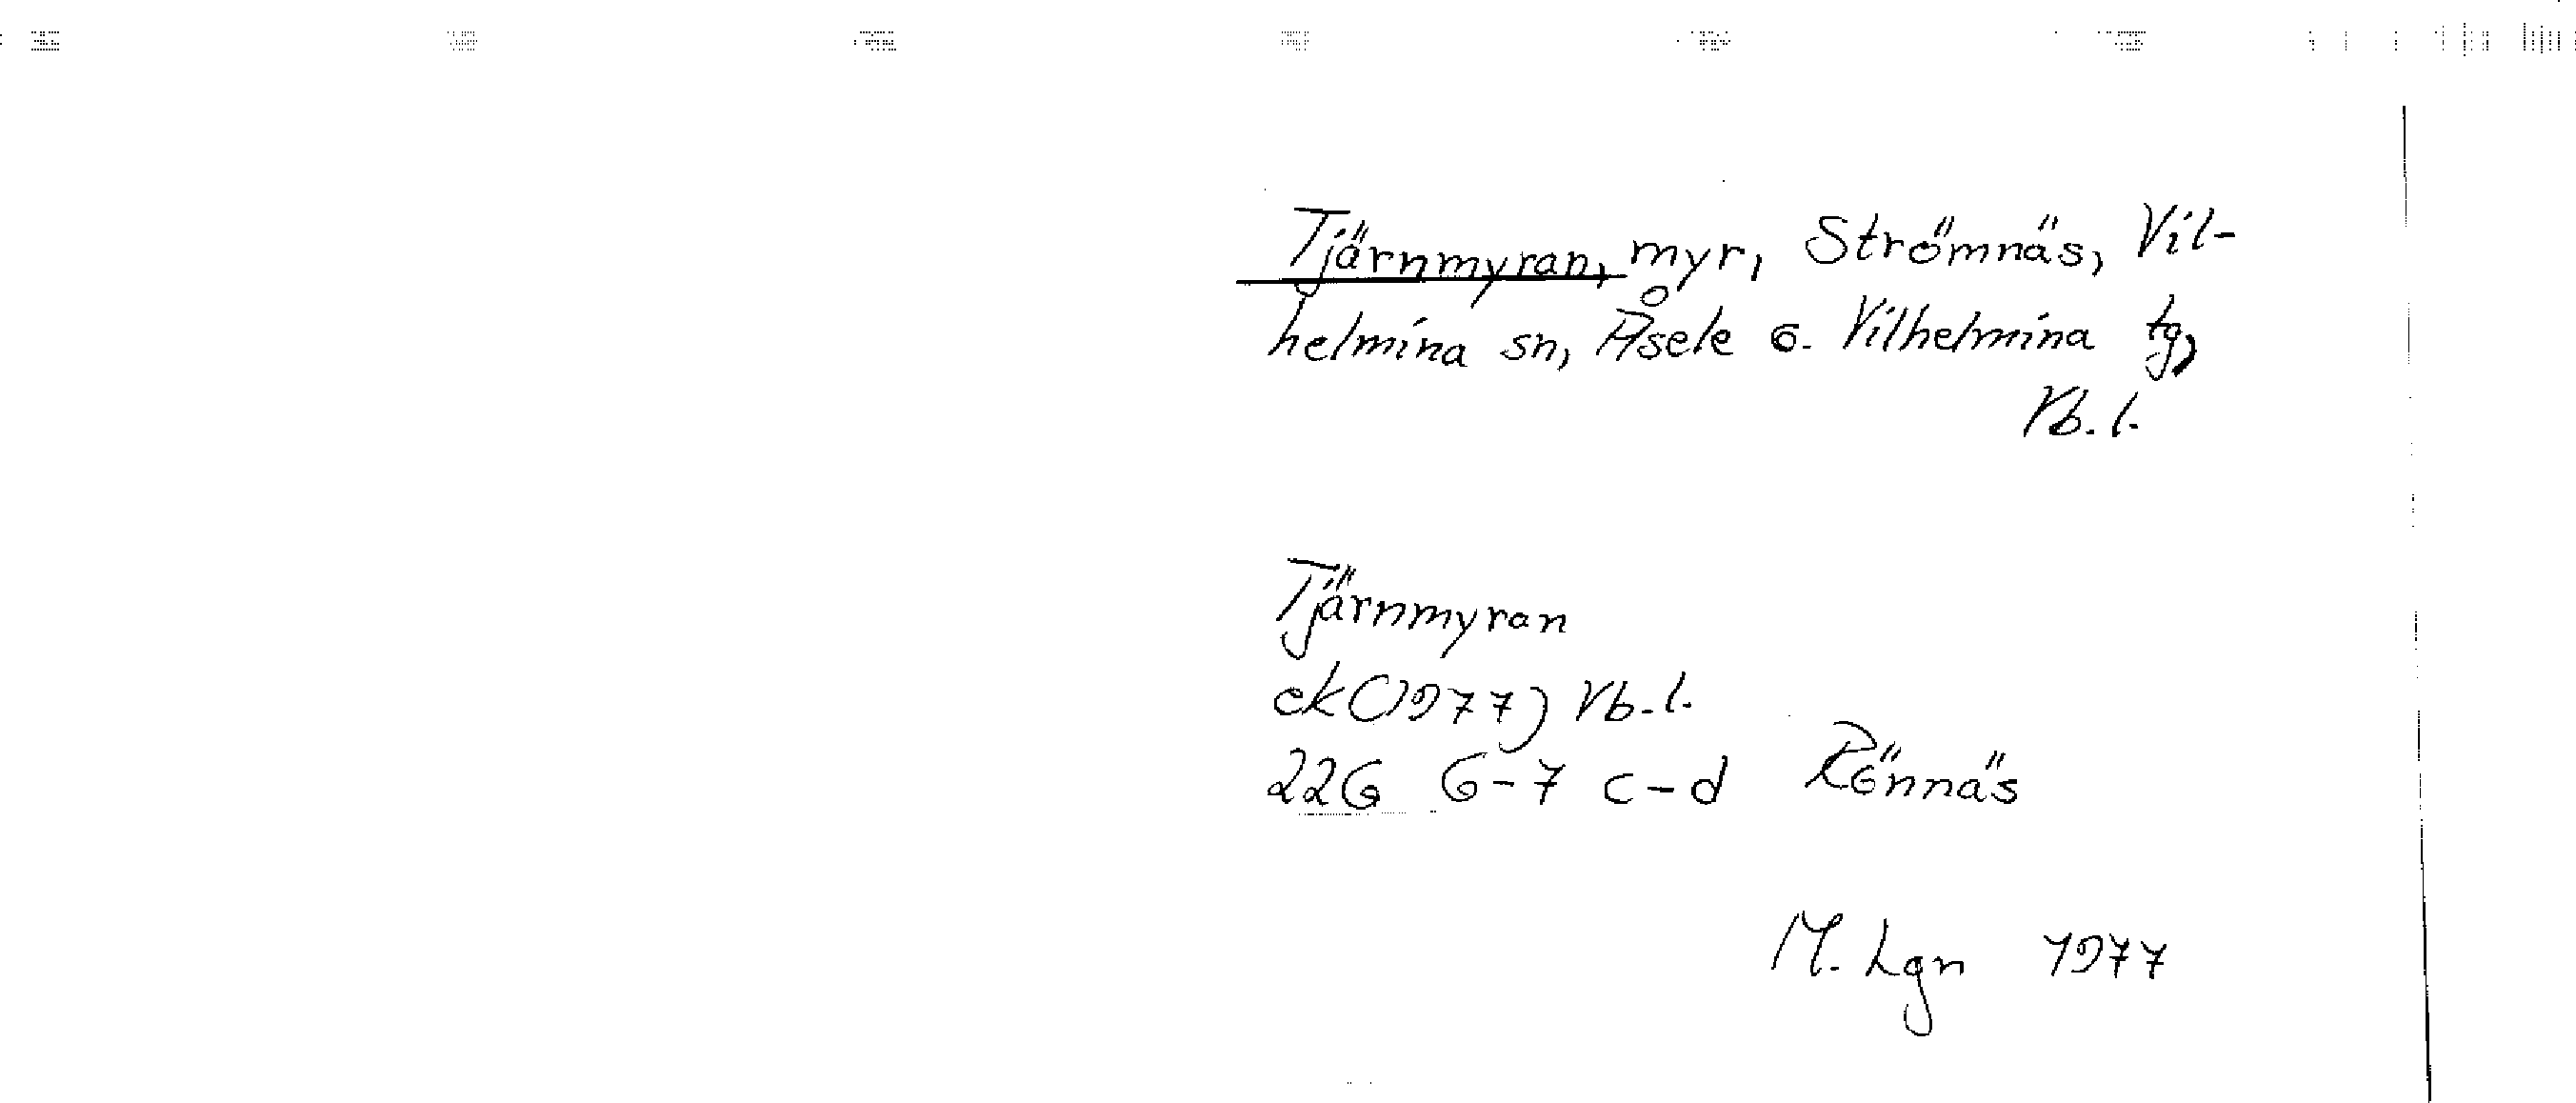 Tjärnmyran, myr, Strömnäs, Vil-
helmina sn, Åsele o. Vilhelmina tg,
Vb. l.
Tjärnmyran
ek (1977) Vb. l.
22G 6-7 c-d Rönnäs
M. Lgn 1977